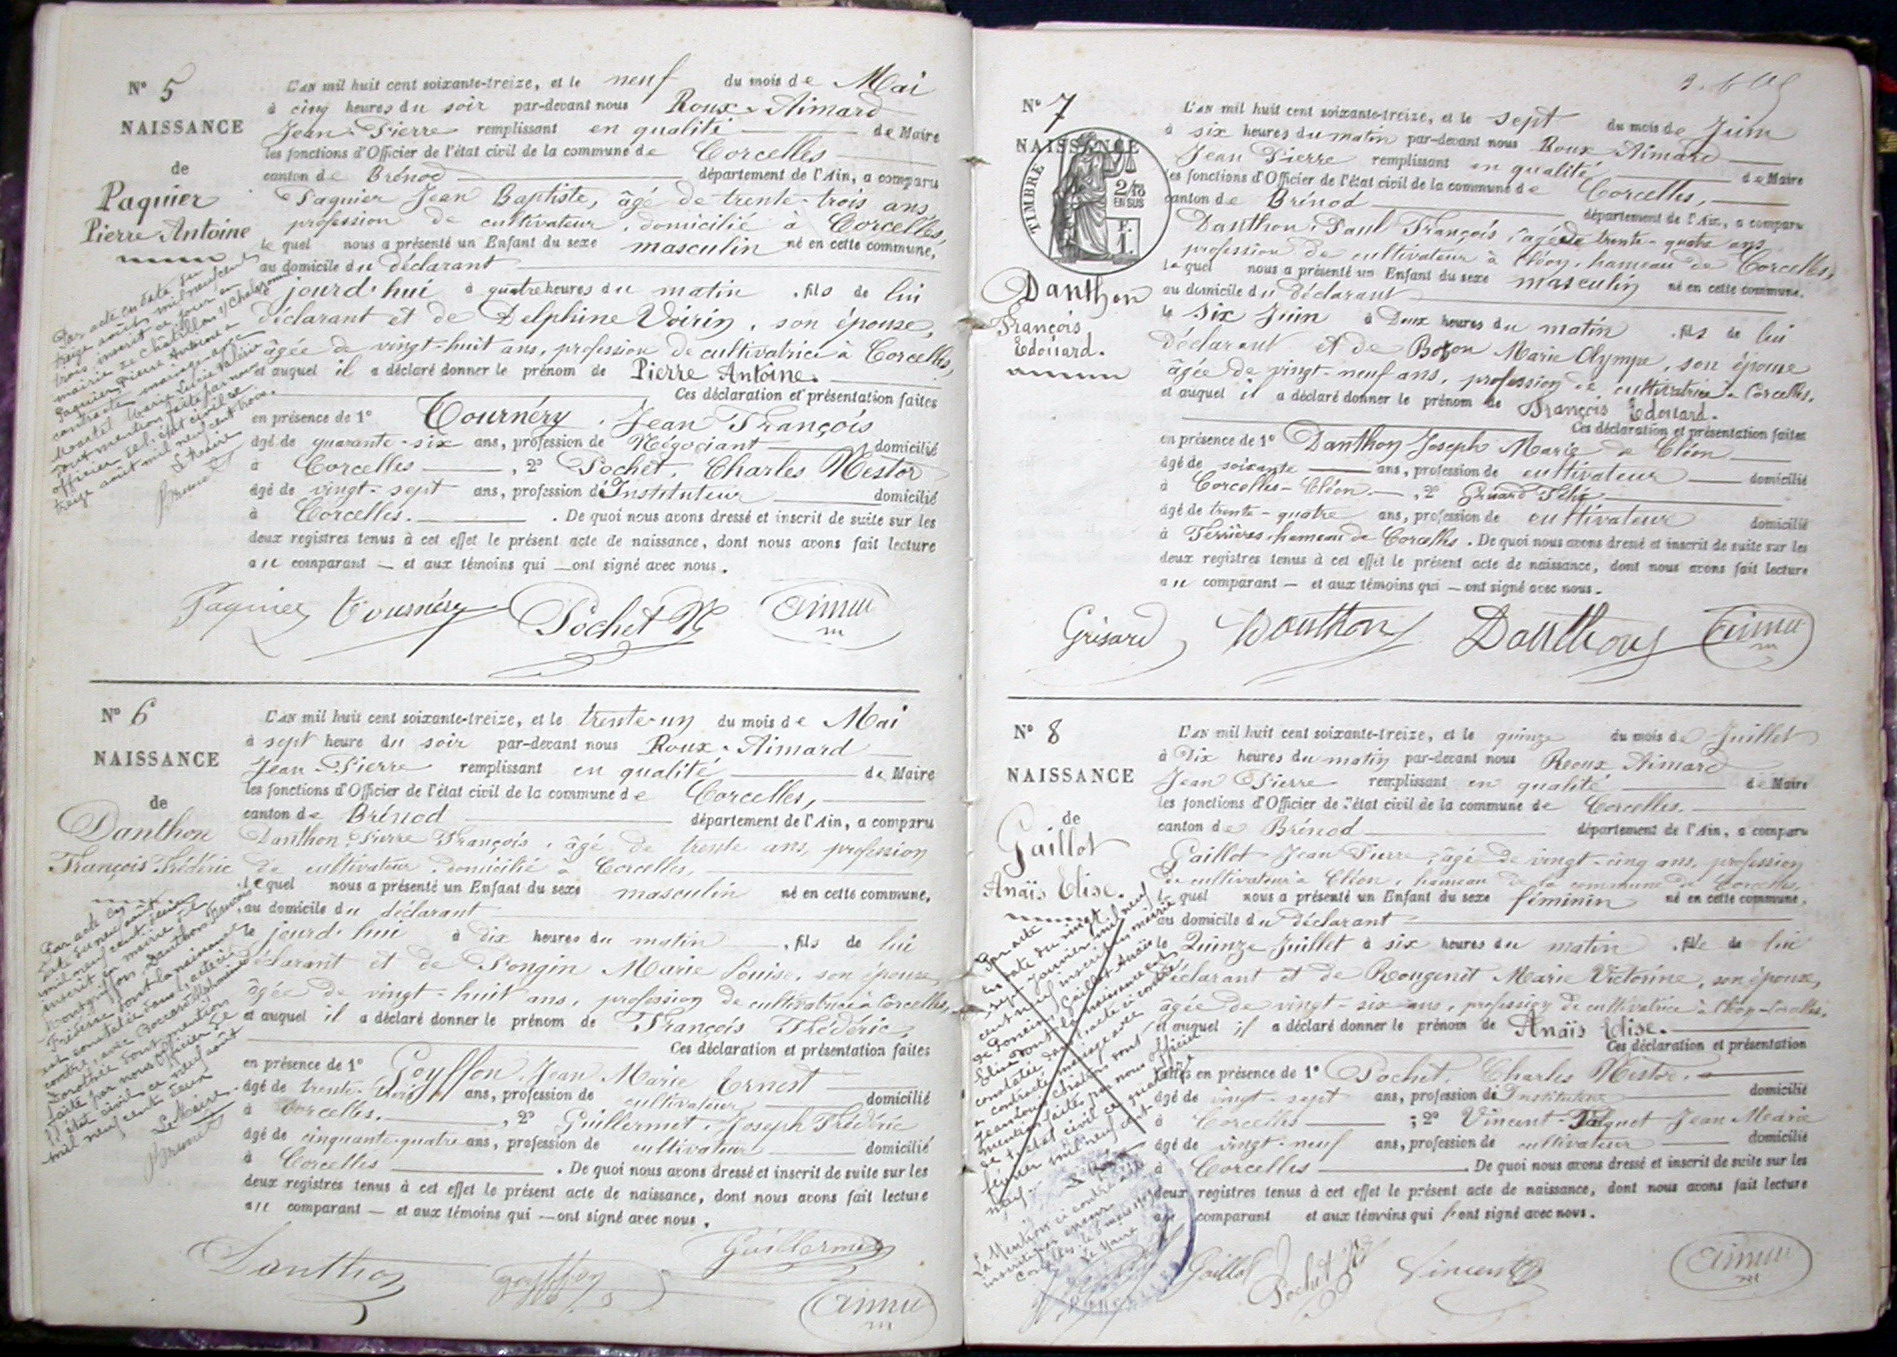 N° 5
NAISSANCE
de
Paquier
Pierre Antoine
L'AN mil huit cent soixante-treize, et le neuf du mois de Mai
à cinq heures du soir par-devant nous Roux-Aimard
Jean-Pierre remplissant en qualité de Maire
les fonctions d'Officier de l'état civil de la commune de Corcelles
canton de Brénod département de l'Ain, a comparu
Paquier Jean Baptiste, âgé de trente-trois ans,
profession de cultivateur, domicilié à Corcelles,
le quel nous a présenté un Enfant du sexe masculin né en cette commune,
au domicile du déclarant
jourd'hui à quatre heures du matin, fils de lui
déclarant et de Delphine Voirin, son épouse,
âgée de vingt-huit ans, profession de cultivatrice à Corcelles,
et auquel il a déclaré donner le prénom de Pierre Antoine.
Ces déclaration et présentation faites
en présence de 1° Tournéry, Jean François
âgé de quarante-six ans, profession de Négociant domicilié
à Corcelles, 2° Pochet, Charles Nestor
âgé de vingt-sept ans, profession d'Instituteur domicilié
à Corcelles. De quoi nous avons dressé et inscrit de suite sur les
deux registres tenus à cet effet le présent acte de naissance, dont nous avons fait lecture
au comparant — et aux témoins qui — ont signé avec nous.
Par acte en date du
treize août mil neuf cent
trois inscrit ce jour en
mairie de Châtillon s/ Chalaronne
Paquier Pierre Antoine a
contracté mariage avec
Marie Lucie Valérie
dont mention faite par nous
officier de l'état civil ce
treize août mil neuf cent trois.
Le Maire
Paquier Tournéry Pochet N Aimar
N° 6
NAISSANCE
de
Danthon
François Frédéric
L'AN mil huit cent soixante-treize, et le trente-un du mois de Mai
à sept heure du soir par-devant nous Roux-Aimard
Jean-Pierre remplissant en qualité de Maire
les fonctions d'Officier de l'état civil de la commune de Corcelles,
canton de Brénod département de l'Ain, a comparu
Danthon Pierre François, âgé de trente ans, profession
de cultivateur, domicilié à Corcelles,
le quel nous a présenté un Enfant du sexe masculin né en cette commune,
au domicile du déclarant
le jourd'hui à dix heures du matin, fils de lui
déclarant et de Pongin Marie Louise, son épouse,
âgée de vingt-huit ans, profession de cultivatrice à Corcelles,
et auquel il a déclaré donner le prénom de François Frédéric,
Ces déclaration et présentation faites
en présence de 1° Goyffon, Jean Marie Ernest
âgé de trente- ans, profession de cultivateur domicilié
à Corcelles, 2° Guillermet, Joseph Frédéric
âgé de cinquante-quatre ans, profession de cultivateur domicilié
à Corcelles. De quoi nous avons dressé et inscrit de suite sur les
deux registres tenus à cet effet le présent acte de naissance, dont nous avons fait lecture
au comparant — et aux témoins qui — ont signé avec nous.
Par acte en
date du neuf août
mil neuf cent
inscrit en mairie de
Danthon François
Frédéric dont la naissance
est constatée dans l'acte ci
contre, avec Boccard
Dorothée dont mention
faite par nous Officier de
l'état civil, ce neuf août
mil neuf cent deux
Le Maire
Danthon Goyffon Guillermet Aimar
N° 7
NAISSANCE
TIMBRE
2/10
EN SUS
F.
1.
Danthon
François
Edouard.
L'AN mil huit cent soixante-treize, et le sept du mois de Juin
à six heures du matin par-devant nous Roux Aimard
Jean Pierre remplissant en qualité de Maire
les fonctions d'Officier de l'état civil de la commune de Corcelles,
canton de Brénod département de l'Ain, a comparu
Danthon, Paul François, âgé de trente-quatre ans,
profession de cultivateur à Cléon, hameau de Corcelles,
le quel nous a présenté un Enfant du sexe masculin né en cette commune.
au domicile du déclarant
le Six Juin à Deux heures du matin, fils de lui
déclarant et de Boton Marie Olympe, son épouse
âgée de vingt-neuf ans, profession de cultivatrice à Corcelles.
et auquel il a déclaré donner le prénom de François Edouard.
Ces déclaration et présentation faites
en présence de 1° Danthon Joseph-Marie de Cléon
âgé de soixante ans, profession de cultivateur domicilié
à Corcelles-Cléon, 2° Grisard
âgé de trente-quatre ans, profession de cultivateur domicilié
à Ferrières hameau de Corcelles. De quoi nous avons dressé et inscrit de suite sur les
deux registres tenus à cet effet le présent acte de naissance, dont nous avons fait lecture
au comparant — et aux témoins qui — ont signé avec nous.
Grisard Danthon Danthon Aimar
N° 8
NAISSANCE
de
Gaillot
Anaïs Elise.
L'AN mil huit cent soixante-treize, et le quinze du mois de Juillet
à Dix heures du matin par-devant nous Roux Aimard
Jean Pierre remplissant en qualité de Maire
les fonctions d'Officier de l'état civil de la commune de Corcelles.
canton de Brénod département de l'Ain, a comparu
Gaillot Jean Pierre, âgé de vingt-cinq ans, profession
de cultivateur à Cléon, hameau de la commune de Corcelles,
le quel nous a présenté un Enfant du sexe féminin né en cette commune,
au domicile du déclarant
le Quinze Juillet à six heures du matin, fille de lui
déclarant et de Rougemit Marie Victorine, son épouse,
âgée de vingt-six ans, profession de cultivatrice à Corcelles.
et auquel il a déclaré donner le prénom de Anaïs Elise.
Ces déclaration et présentation
faites en présence de 1° Pochet, Charles Nestor.
âgé de vingt-sept ans, profession d'Instituteur domicilié
à Corcelles ; 2° Vincent- Jean Marie
âgé de vingt-neuf ans, profession de cultivateur domicilié
à Corcelles. De quoi nous avons dressé et inscrit de suite sur les
deux registres tenus à cet effet le présent acte de naissance, dont nous avons fait lecture
au comparant et aux témoins qui ont signé avec nous.
Par acte
en date du vingt
sept janvier mil neuf
cent neuf inscrit en mairie
de Gaillot Anaïs
Elise dont la naissance est
constatée dans l'acte ci contre
a contracté mariage avec
mention faite par nous officier
de l'état civil ce quatre
février mil neuf cent
neuf.
La Mention ci contre a été
inscrite par erreur
Le Maire
Gaillot Pochet Vincent Aimar